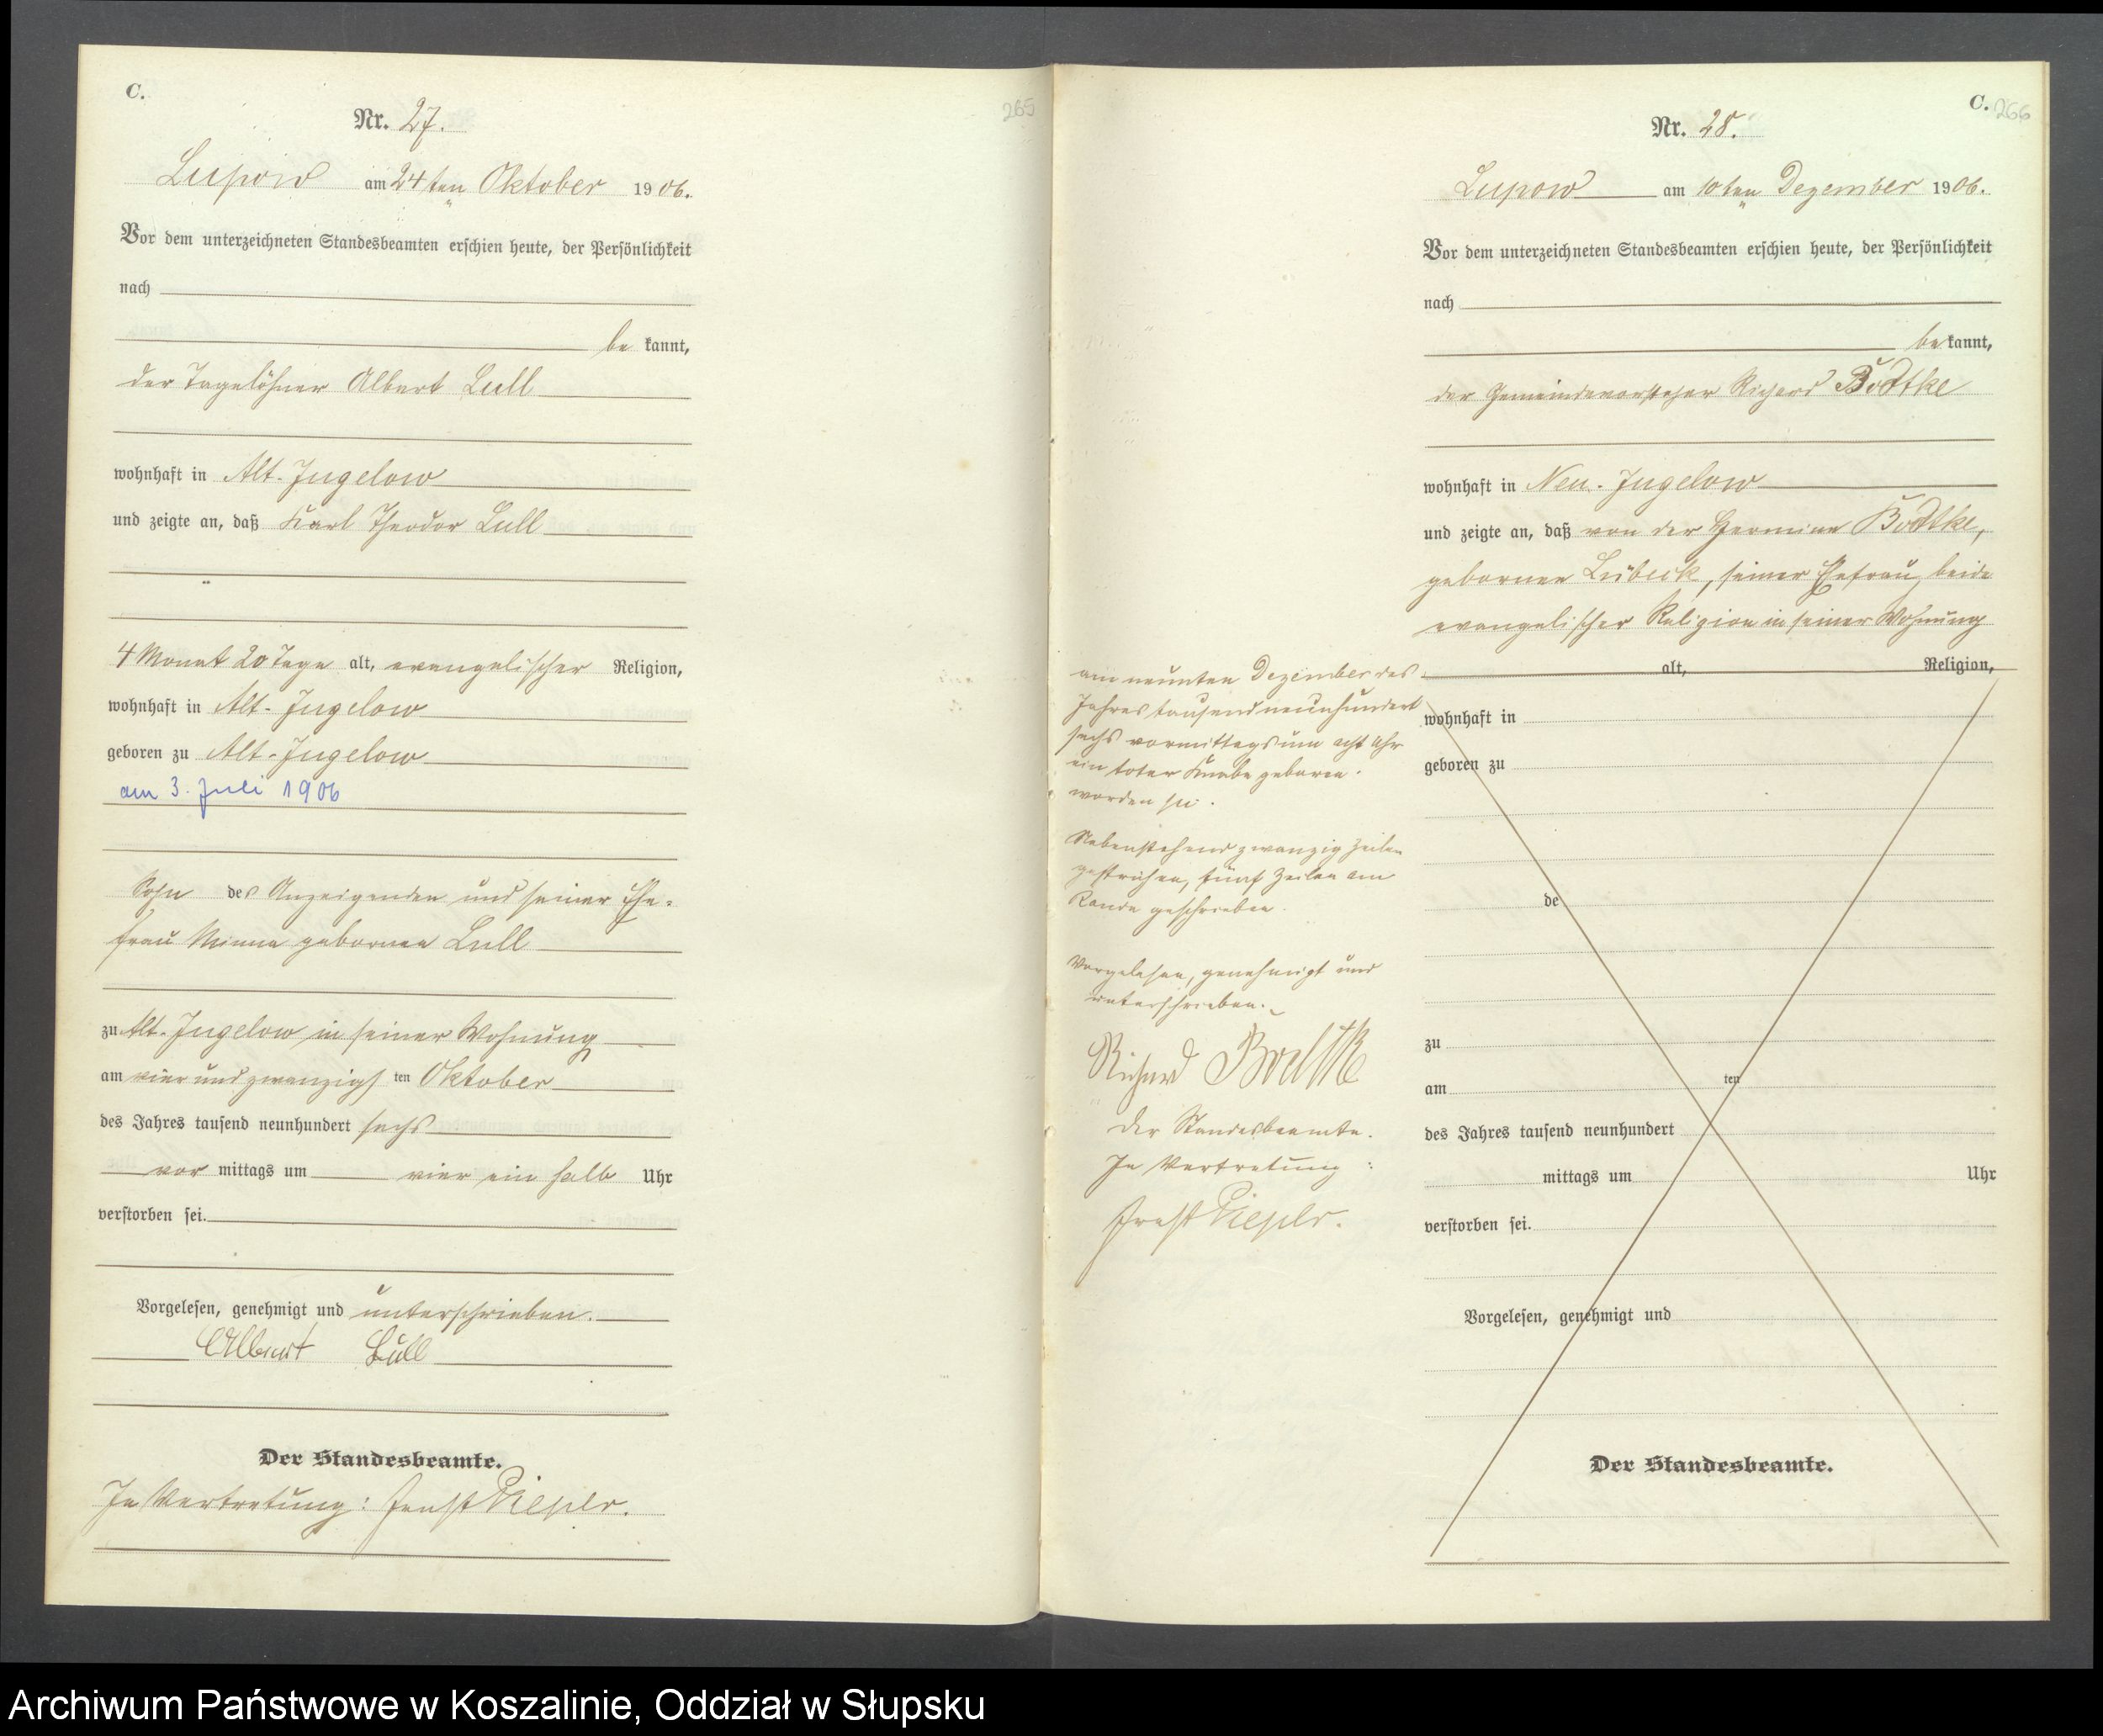 C.
265
Nr. 27.
Lupow am 24ten Oktober 1906.
Vor dem unterzeichneten Standesbeamten erschien heute, der Persönlichkeit
nach
be kannt,
der Tagelöhner Albert Lüll
wohnhaft in Alt-Jugelow
und zeigte an, daß Karl Theodor Lüll
4 Monat 20 Tage alt, evangelischer Religion,
wohnhaft in Alt-Jugelow
geboren zu Alt-Jugelow
am 3. Juli 1906
Sohn des Anzeigenden und seiner Ehe-
frau Minna geborenen Lüll
zu Alt-Jugelow in seiner Wohnung
am vier und zwanzigsten Oktober
des Jahres tausend neunhundert sechs
vor mittags um vier ein halb Uhr
verstorben sei.
Vorgelesen, genehmigt und unterschrieben.
Albert Lüll
Der Standesbeamte.
In Vertretung: Ernst Pieper.
C. 266
Nr. 28.
Lupow am 10ten Dezember 1906.
Vor dem unterzeichneten Standesbeamten erschien heute, der Persönlichkeit
nach
be kannt,
der Gemeindevorsteher Richard Bodtke
wohnhaft in Neu-Jugelow
und zeigte an, daß von der Hermine Bodtke,
geborenen Lübeck, seiner Ehefrau, beide
evangelischer Religion in seiner Wohnung
alt, Religion,
wohnhaft in
geboren zu
de
zu
am ten
des Jahres tausend neunhundert
mittags um Uhr
verstorben sei.
Vorgelesen, genehmigt und
Der Standesbeamte.
am neunten Dezember des
Jahres tausend neunhundert
sechs vormittags um acht Uhr
ein toter Knabe geboren
worden sei.
Nebenstehend zwanzig Zeilen
gestrichen, fünf Zeilen am
Rande geschrieben.
Vorgelesen, genehmigt und
unterschrieben.
Richard Bodtke
Der Standesbeamte.
In Vertretung:
Ernst Pieper.
Archiwum Państwowe w Koszalinie, Oddział w Słupsku